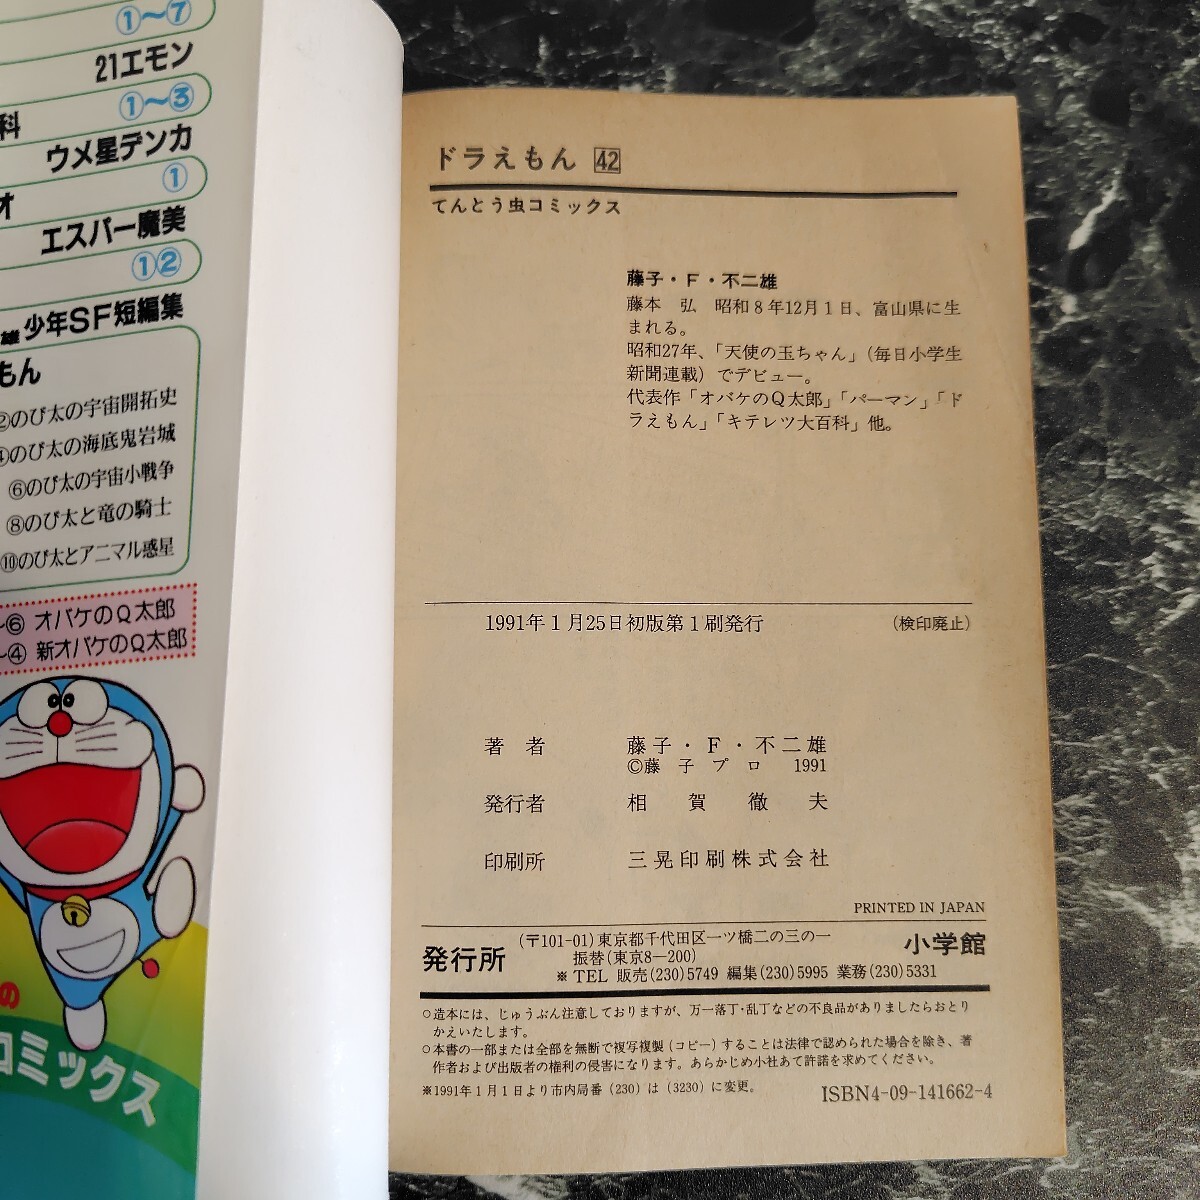 ①〜⑦
21エモン
①〜③
科
ウメ星デンカ
①
オ
エスパー魔美
①②
雄少年SF短編集
もん
②のび太の宇宙開拓史
④のび太の海底鬼岩城
⑥のび太の宇宙小戦争
⑧のび太と竜の騎士
⑩のび太とアニマル惑星
〜⑥ オバケのQ太郎
〜④ 新オバケのQ太郎
の
コミックス
ドラえもん 42
てんとう虫コミックス
藤子・F・不二雄
藤本 弘 昭和8年12月1日、富山県に生
まれる。
昭和27年、「天使の玉ちゃん」(毎日小学生
新聞連載)でデビュー。
代表作「オバケのQ太郎」「パーマン」「ド
ラえもん」「キテレツ大百科」他。
1991年1月25日初版第1刷発行 (検印廃止)
著者 藤子・F・不二雄
©藤子プロ 1991
発行者 相賀徹夫
印刷所 三晃印刷株式会社
PRINTED IN JAPAN
発行所 (〒101-01)東京都千代田区一ツ橋二の三の一 小学館
振替(東京8—200)
※ TEL 販売(230)5749 編集(230)5995 業務(230)5331
○造本には、じゅうぶん注意しておりますが、万一落丁・乱丁などの不良品がありましたらおとり
かえいたします。
○本書の一部または全部を無断で複写複製(コピー)することは法律で認められた場合を除き、著
作者および出版者の権利の侵害になります。あらかじめ小社あて許諾を求めてください。
※1991年1月1日より市内局番(230)は(3230)に変更。
ISBN4-09-141662-4